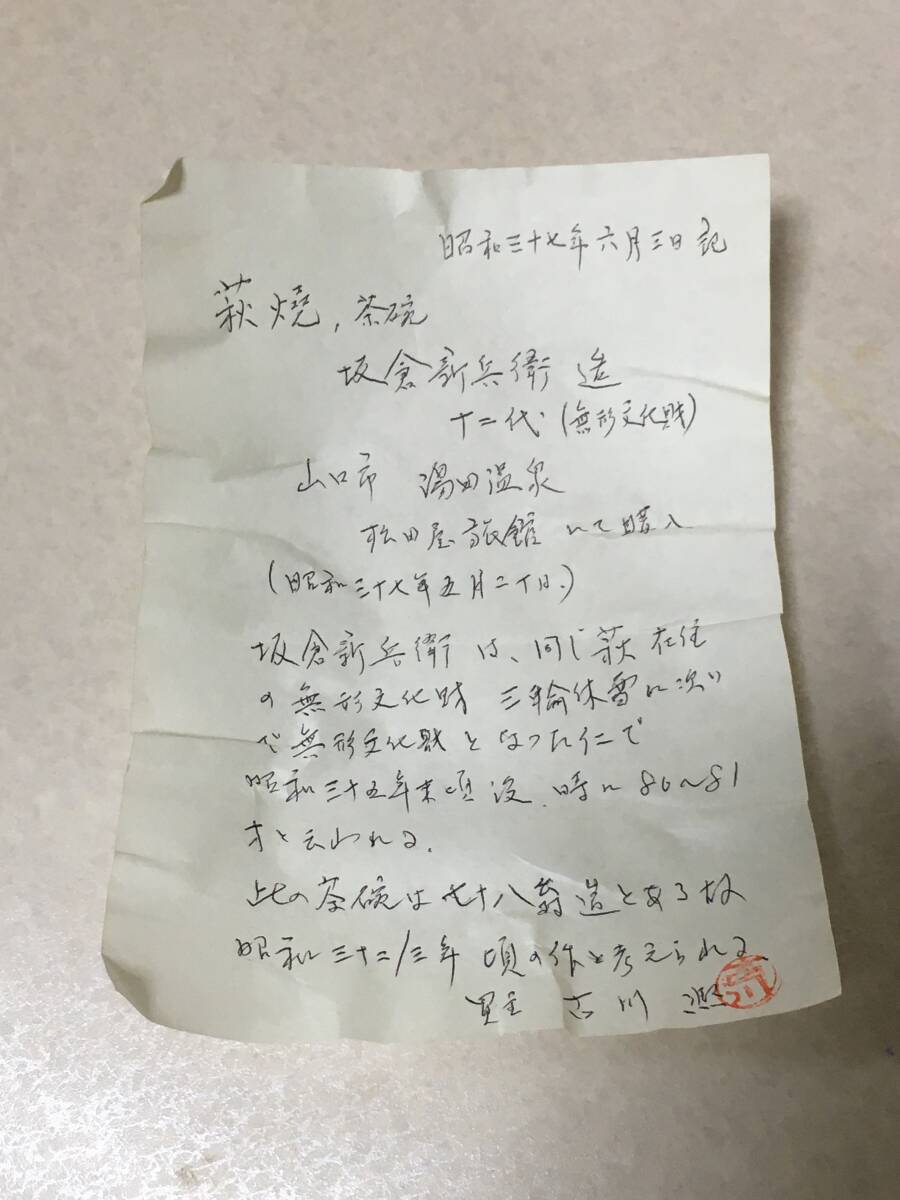 昭和三十七年六月三日記
萩燒，茶碗
坂倉新兵衛 造
十二代(無形文化財)
山口市 湯田温泉
松田屋旅館にて購入
(昭和三十七年五月二十日.)
坂倉新兵衛は、同じ萩在住
の無形文化財 三輪休雪に次い
で無形文化財となった仁で
昭和三十五年末頃没、時に80〜81
才と云われる.
此の茶碗は七十八翁造とある故
昭和三十二/三年頃の作と考えられる
買主 古川